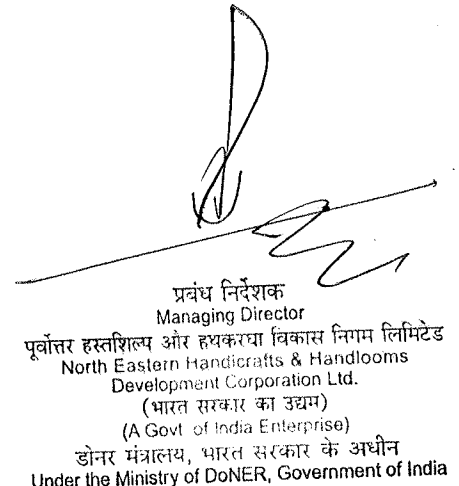 प्रबंध निर्देशक
Managing Director
पूर्वोत्तर हस्तशिल्प और हथकरघा विकास निगम लिमिटेड
North Eastern Handicrafts & Handlooms
Development Corporation Ltd.
(भारत सरकार का उद्यम)
(A Govt of India Enterprise)
डोनर मंत्रालय, भारत सरकार के अधीन
Under the Ministry of DoNER, Government of India